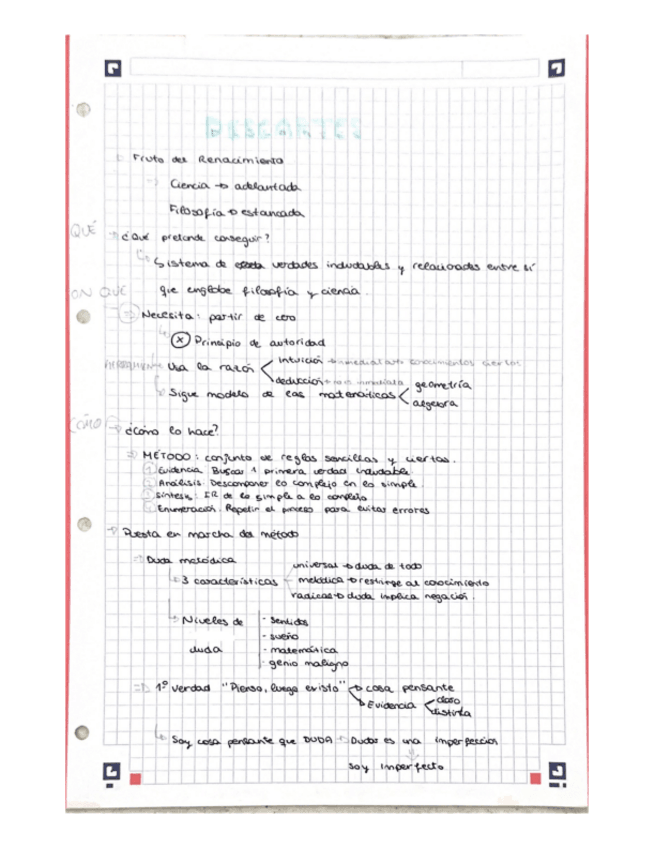 Fruto del Renacimiento
Ciencia → adelantada
Filosofía → estancada
QUÉ → ¿Qué pretende conseguir?
Sistema de verdades indudables y relacionadas entre sí
que englobe filosofía y ciencia.
ON QUE
⇒ Necesita: partir de cero
ⓧ Principio de autoridad
Usa la razón < intuición → conocimientos ciertos
deducción → no inmediata
Sigue modelo de las matemáticas < geometría
algebra
CÓMO → ¿Cómo lo hace?
⇒ MÉTODO: conjunto de reglas sencillas y ciertas.
1 Evidencia. Buscar 1 primera verdad indudable.
2 Análisis. Descomponer lo complejo en lo simple.
3 Síntesis: IR de lo simple a lo complejo
4 Enumeración. Repetir el proceso para evitar errores
→ Puesta en marcha del método
⇒ Duda metódica
3 características
universal → duda de todo
metódica → restringe al conocimiento
radical → duda implica negación.
Niveles de duda
- sentidos
- sueño
- matemática
- genio maligno
⇒ 1º verdad "Pienso, luego existo" → cosa pensante
→ Evidencia < claro
distinta
Soy cosa pensante que DUDA → Dudar es una imperfección
soy imperfecto